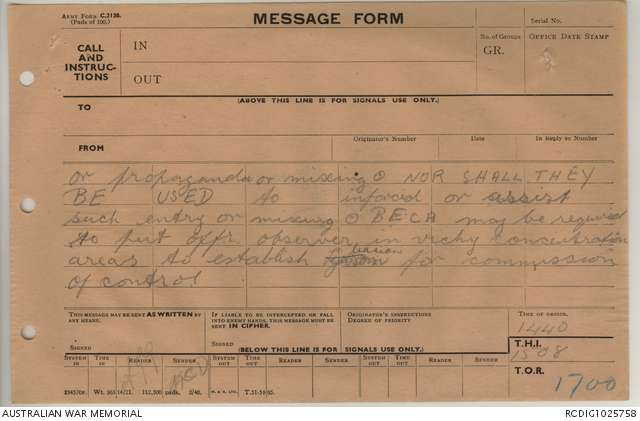 ARMY FORM C.2128.
(Pads of 100.)
MESSAGE FORM
Serial No.
CALL
AND
INSTRUC-
TIONS
IN
OUT
No. of Groups
GR.
OFFICE DATE STAMP
(ABOVE THIS LINE IS FOR SIGNALS USE ONLY.)
TO
FROM
Originator's Number
Date
In Reply to Number
or propaganda or mixing O NOR SHALL THEY
BE USED to inforced or assist
such entry or mixing O BECA may be required
to put offr. observer in vichy concentration
areas to establish liaison for commission
of control
THIS MESSAGE MAY BE SENT AS WRITTEN BY
ANY MEANS.
SIGNED
IF LIABLE TO BE INTERCEPTED OR FALL
INTO ENEMY HANDS, THIS MESSAGE MUST BE
SENT IN CIPHER.
SIGNED
ORIGINATOR'S INSTRUCTIONS
DEGREE OF PRIORITY
TIME OF ORIGIN.
1440
T.H.I.
1508
T.O.R.
1700
(BELOW THIS LINE IS FOR SIGNALS USE ONLY.)
SYSTEM IN
TIME IN
READER
SENDER
SYSTEM OUT
TIME OUT
READER
SENDER
SYSTEM OUT
TIME OUT
READER
SENDER
AUSTRALIAN WAR MEMORIAL
RCDIG1025758